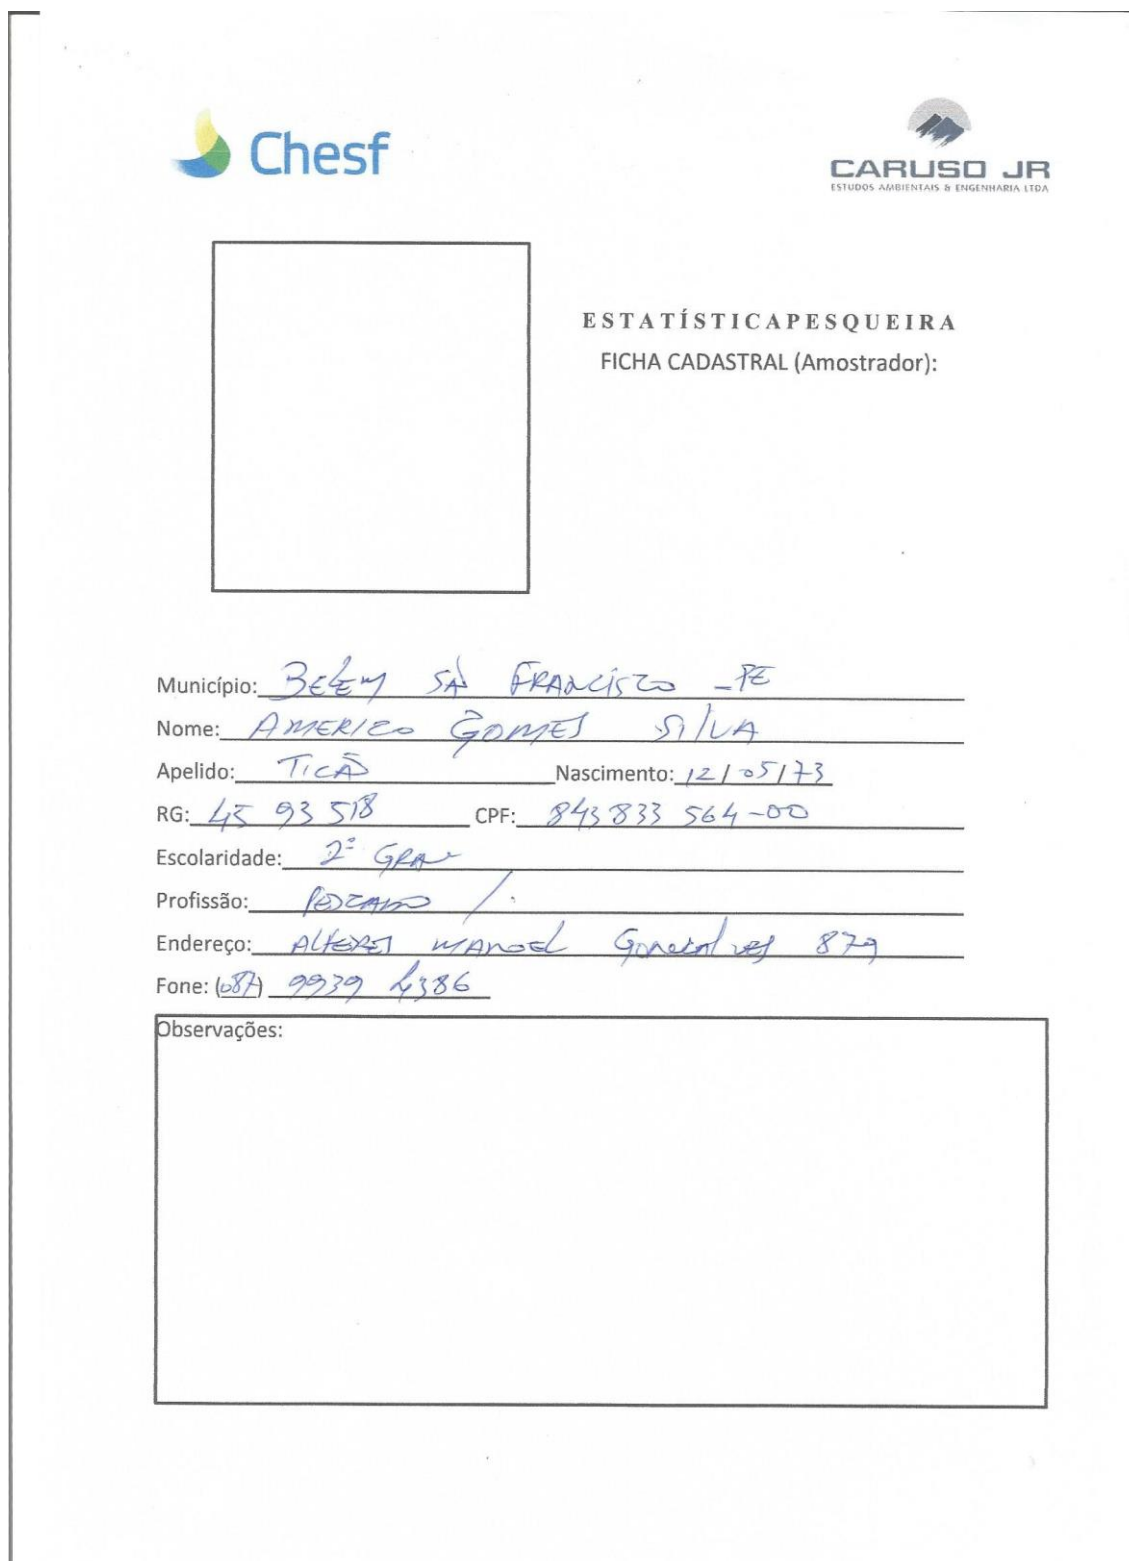 Chesf
CARUSO JR
ESTUDOS AMBIENTAIS & ENGENHARIA LTDA
ESTATÍSTICAPESQUEIRA
FICHA CADASTRAL (Amostrador):
Município: BELÉM SÃ FRANCISCO - PE
Nome: AMERICO GOMES SILVA
Apelido: TICÃO Nascimento: 12/05/73
RG: 45 93 518 CPF: 843 833 564-00
Escolaridade: 2º GRAU
Profissão:
Endereço: ALFERES MANOEL Goncalves 879
Fone: (087) 9939 4386
Observações: